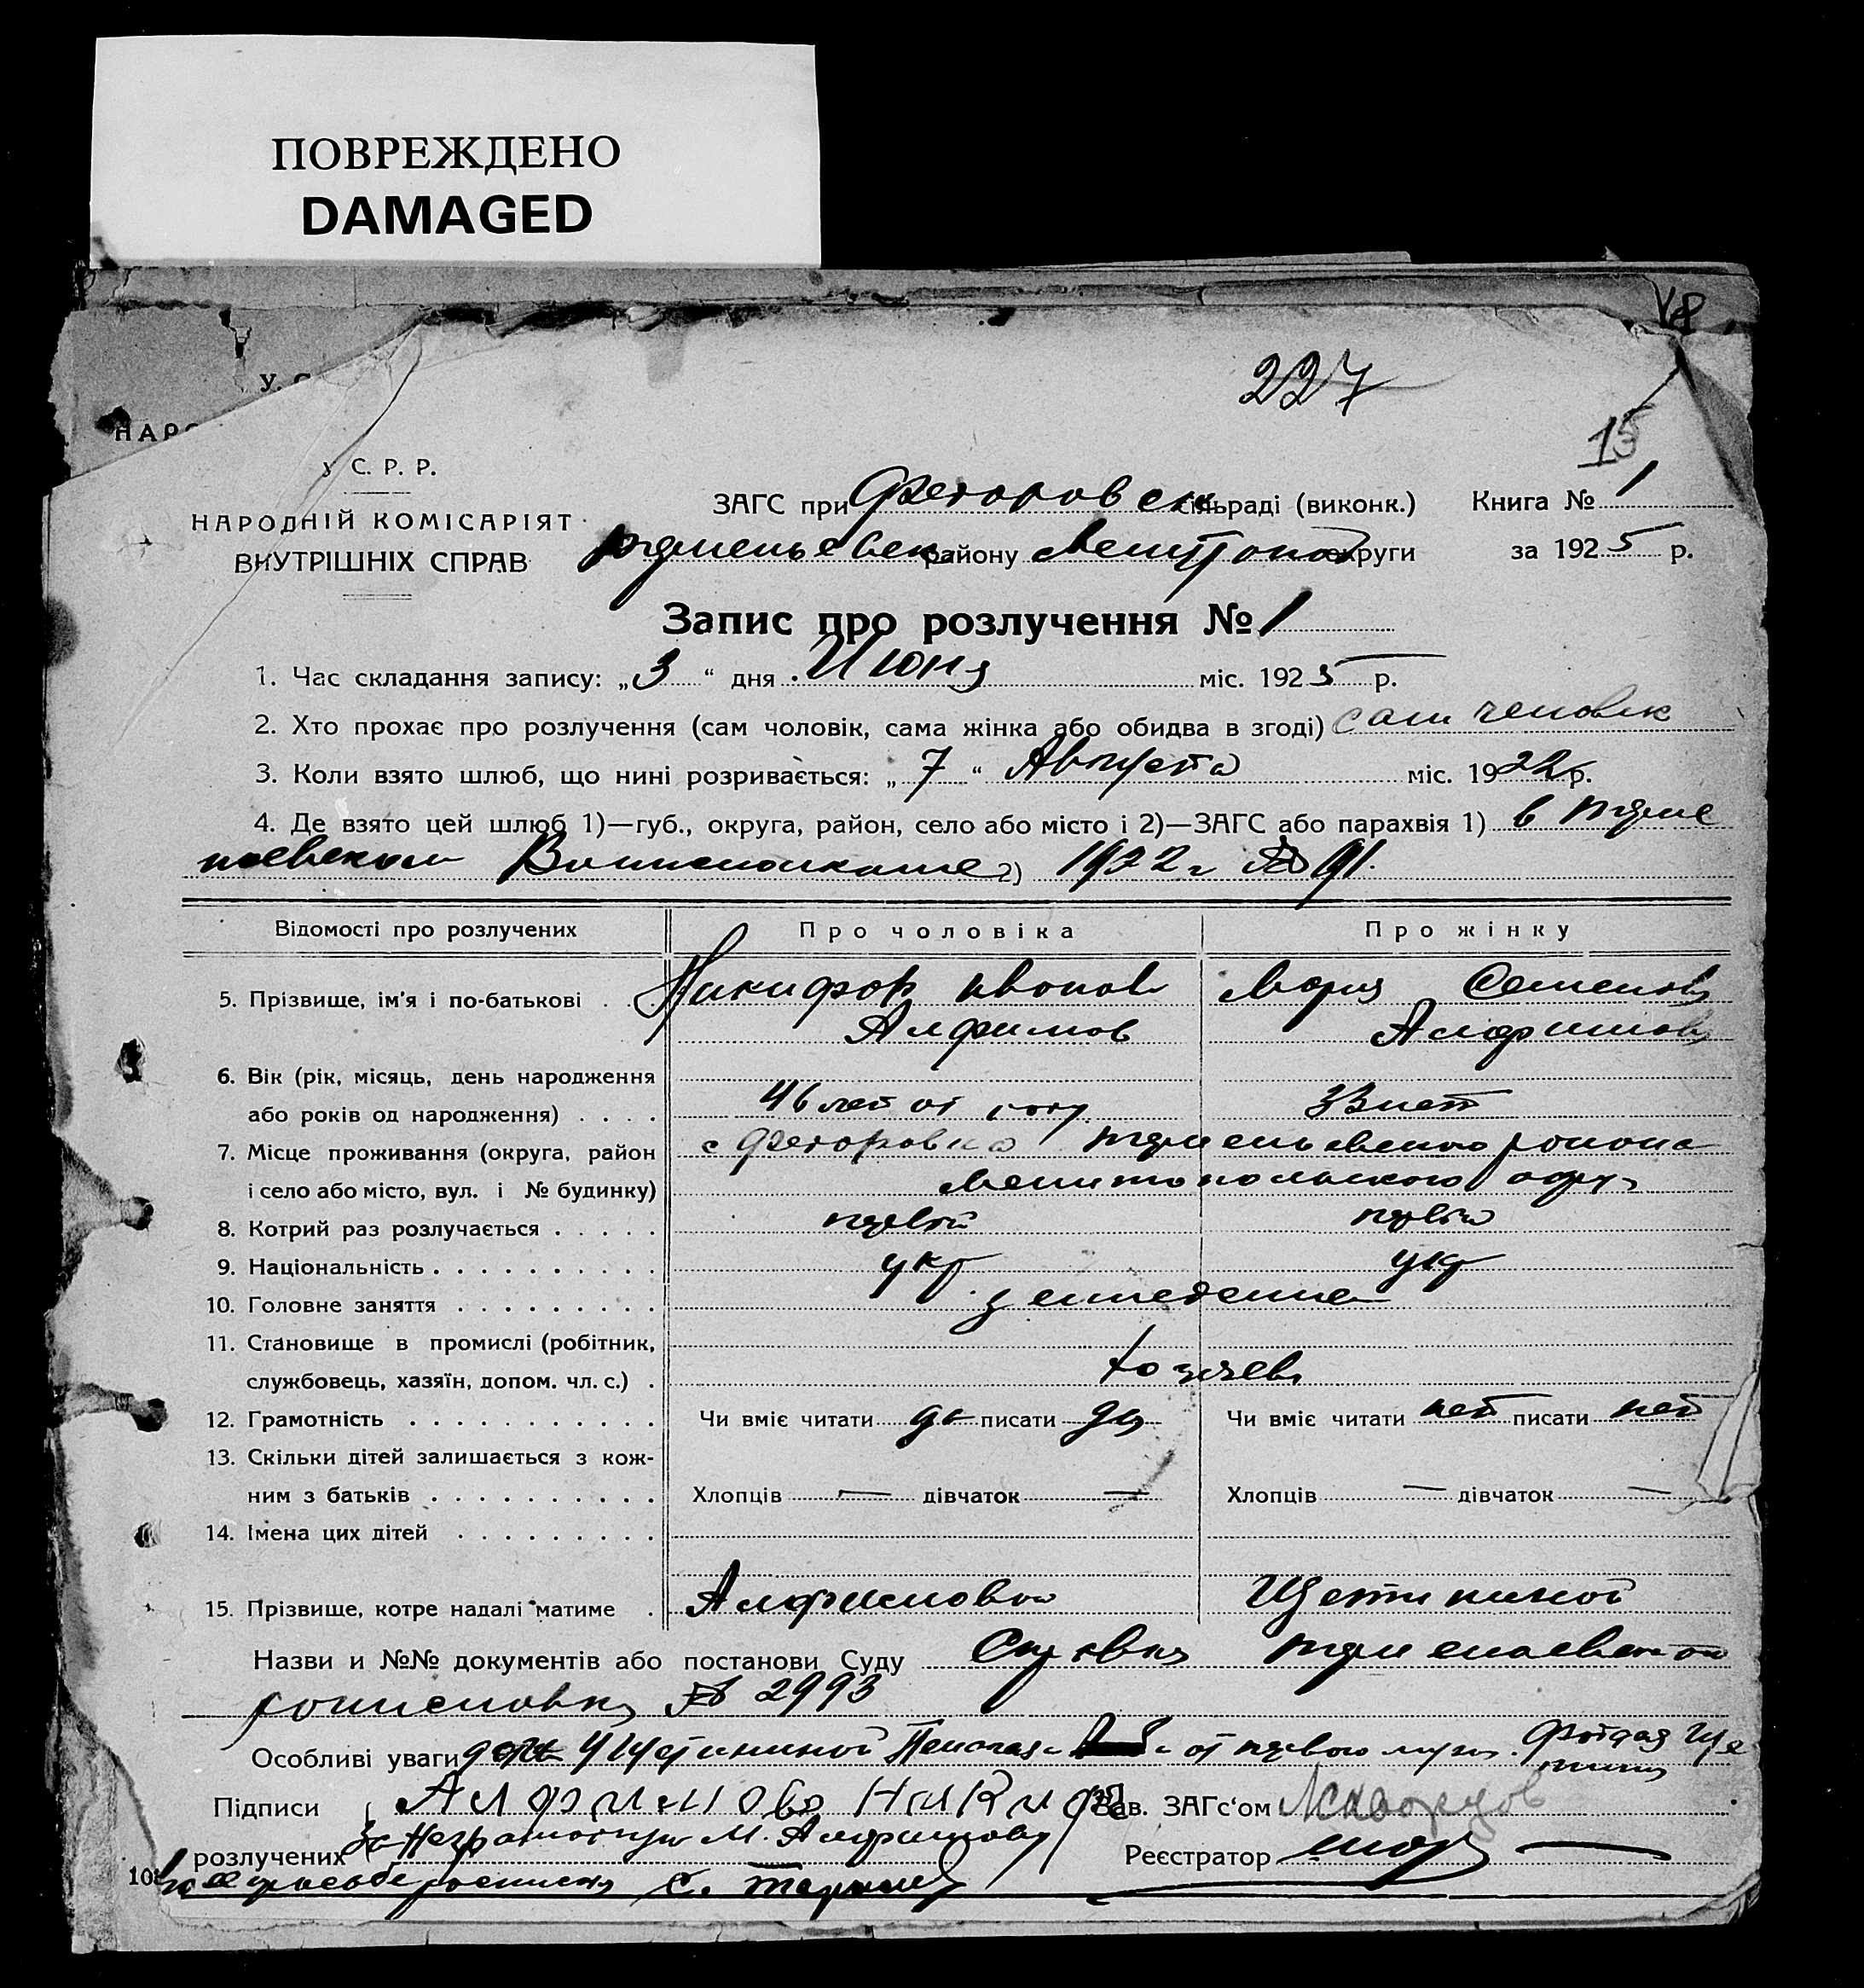 ПОВРЕЖДЕНО
DAMAGED
У. С
НАРО
227
15
У С. Р. Р.
НАРОДНІЙ КОМІСАРІЯТ
ВНУТРІШНІХ СПРАВ
ЗАГС при Федоровск сільраді (виконк.) Книга № 1
району Мелитопол округи за 1925 р.
Запис про розлучення № 1
1. Час складання запису: „3“ дня Июня міс. 1925 р.
2. Хто прохає про розлучення (сам чоловік, сама жінка або обидва в згоді) сам человек
3. Коли взято шлюб, що нині розривається: „7“ Августа міс. 1922 р.
4. Де взято цей шлюб 1)—губ., округа, район, село або місто і 2)—ЗАГС або парахвія 1) в
2) 1922 г № 91.
Відомості про розлучених Про чоловіка Про жінку
5. Прізвище, ім'я і по-батькові . . Никифор Иванов Мария Семенова
Алфимов Алфимова
6. Вік (рік, місяць, день народження
або років од народження) . . . . 46 лет от роду 33 лет
7. Місце проживання (округа, район с Федоровка района
і село або місто, вул. і № будинку) Мелитопольского окру
8. Котрий раз розлучається . . . . . первый первый
9. Національність . . . . . . . . . . укр укр
10. Головне заняття . . . . . . . . . земледелие
11. Становище в промислі (робітник,
службовець, хазяїн, допом. чл. с.) . хозяев
12. Грамотність . . . . . . . . . . . Чи вміє читати да писати да Чи вміє читати нет писати нет
13. Скільки дітей залишається з кож-
ним з батьків . . . . . . . . . . Хлопців — дівчаток — Хлопців — дівчаток —
14. Імена цих дітей . . . . . . . . .
15. Прізвище, котре надалі матиме . Алфимовы Щетининой
Назви и №№ документів або постанови Суду Справка
№ 2993
Особливі уваги от первого мужа. Ще
Підписи Алфимово Никифо Зав. ЗАГс‘ом Скворцов
розлучених За неграмотную М. Алфимову Реєстратор
по ее просьбе росписался С.